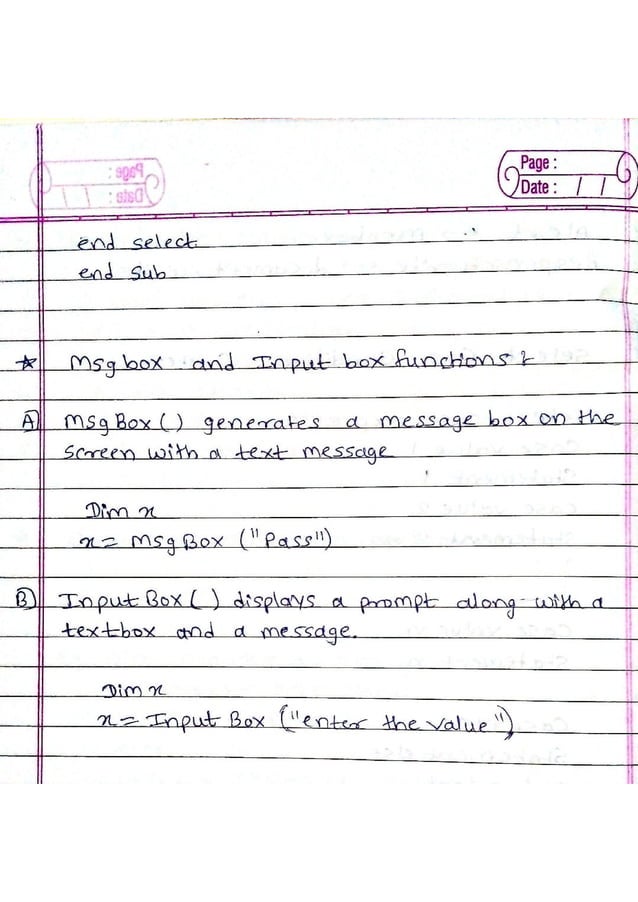 Page :
Date : / /
end select
end Sub
Msgbox and Input box functions :
A) MsgBox() generates a message box on the
screen with a text message
Dim x
x = MsgBox ("Pass")
B) InputBox() displays a prompt along with a
textbox and a message.
Dim x
x = Input Box ("enter the value")